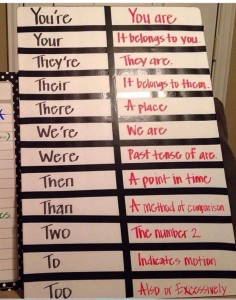 You're You are
Your It belongs to you.
They're They are.
Their It belongs to them.
There A place
We're We are
Were Past tense of are.
Then A point in time
Than A method of comparison
Two The number 2
To Indicates motion
Too Also or Excessively